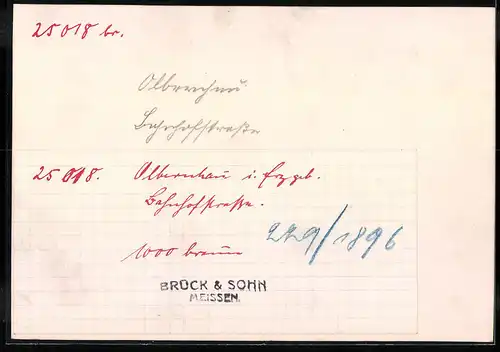 25018 br.
Olbernhau
Bahnhofstraße
25018. Olbernhau i. Erzgeb.
Bahnhofstraße.
229/1896
1000 braun
BRÜCK & SOHN
MEISSEN.